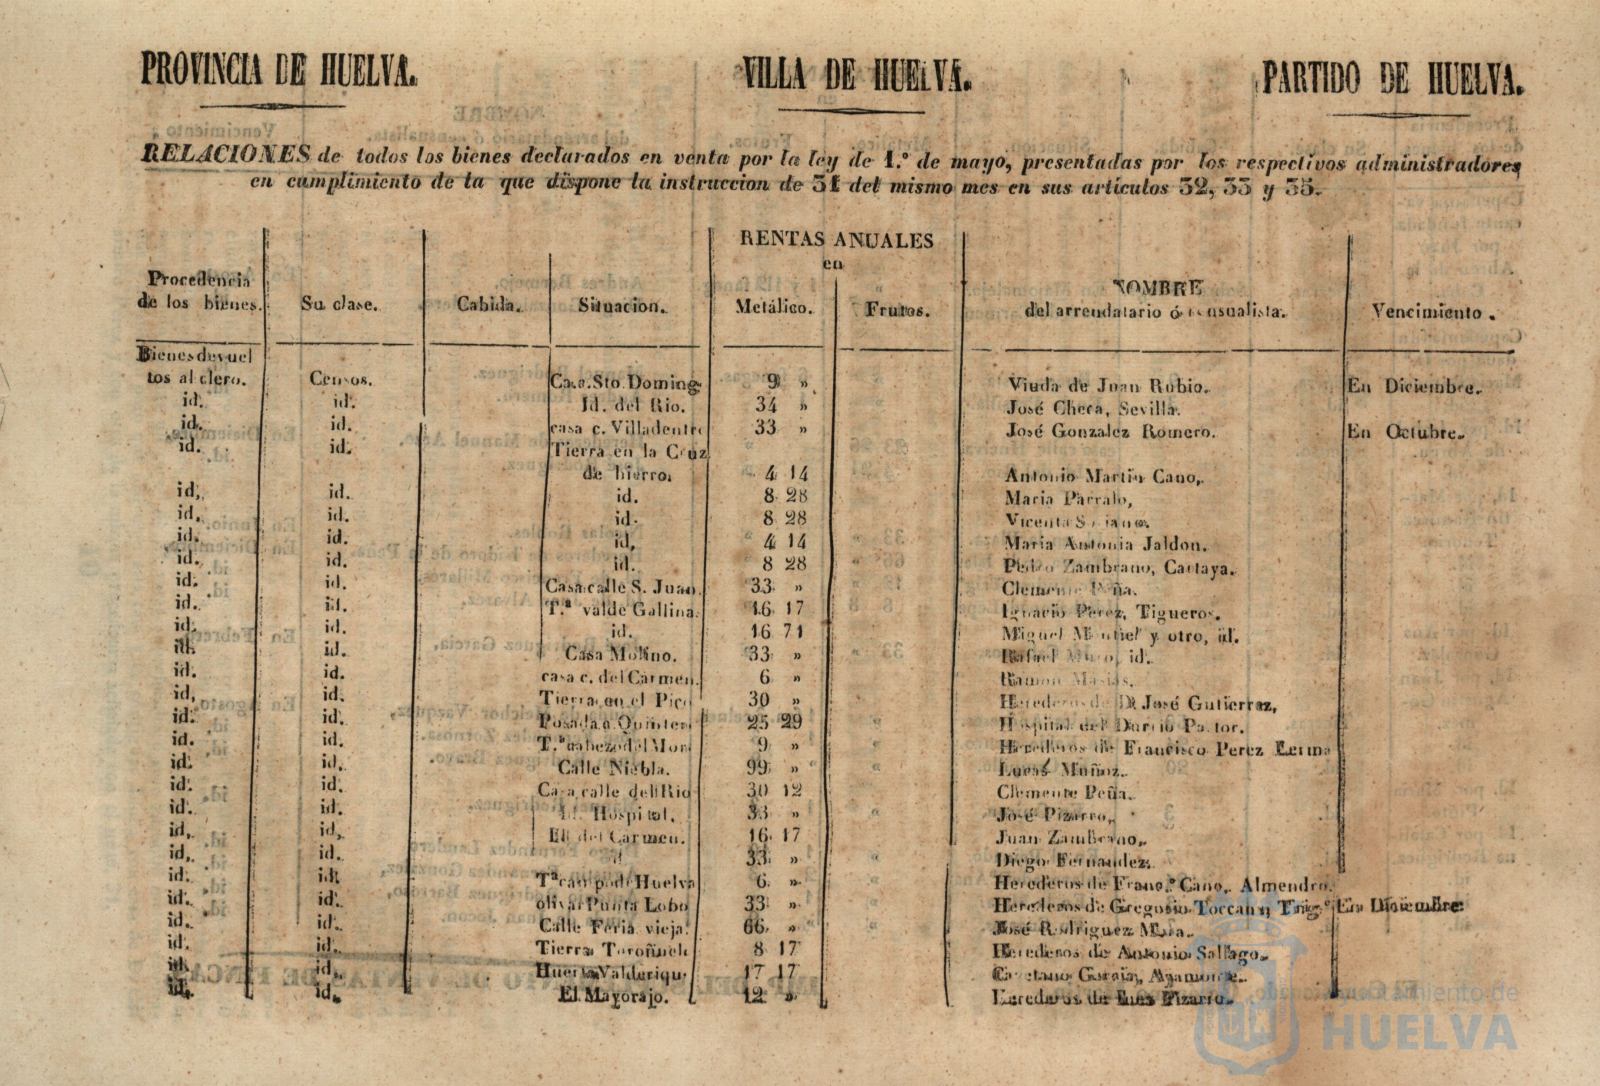 PROVINCIA DE HUELVA. VILLA DE HUELVA. PARTIDO DE HUELVA.
RELACIONES de todos los bienes declarados en venta por la ley de 1.º de mayo, presentadas por los respectivos administradores
en cumplimiento de la que dispone la instruccion de 31 del mismo mes en sus artículos 32, 33 y 35.
RENTAS ANUALES
en
Procedencia NOMBRE
de los bienes. Su clase. Cabida. Situacion. Metálico. Frutos. del arrendatario ó censualista. Vencimiento.
Bienes devuel
tos al clero. Censos. Casa. Sto. Doming. 9 » Viuda de Juan Rubio. En Diciembre.
id. id. Id. del Rio. 34 » José Checa, Sevilla.
id. id. casa c. Villadentro 33 » José Gonzalez Romero. En Octubre.
id. id. Tierra en la Cruz
de hierro. 4 14 Antonio Martin Cano,
id. id. id. 8 28 Maria Parralo,
id. id. id. 8 28 Vicenta
id. id. id. 4 14 Maria Antonia Jaldon.
id. id. id. 8 28 Pedro Zambrano, Cartaya.
id. id. Casa calle S. Juan. 33 » Clemente Peña.
id. id. T.ª valde Gallina. 16 17 Ignacio Perez, Tigueros.
id. id. id. 16 71 Miguel Montiel y otro, id.
id. id. Casa Molino. 33 » Rafael id.
id. id. casa c. del Carmen. 6 » Ramon
id. id. Tierra en el Pico 30 » Herederos de D. José Gutierraz,
id. id. Posada Quintero 25 29 Hospital del Pastor.
id. id. T.ª cabezo del Mor 9 » Herederos de Francisco Perez Lerma
id. id. Calle Niebla. 99 » Lucas Muñoz.
id. id. Casa calle del Rio 30 12 Clemente Peña.
id. id. Id. Hospital. 33 » José Pizarro,
id. id. del Carmen. 16 17 Juan Zambrano,
id. id. 33 » Diego Fernandez.
id. id. T.ª Huelva 6 » Herederos de Franc.º Cano, Almendro.
id. id. olivar Punta Lobo 33 » Herederos de Gregorio En Diciembre.
id. id. Calle Feria vieja. 66 » José Rodriguez Mora.
id. id. Tierra Toroñuelo 8 17 Herederos de Antonio Sallago.
id. id. Huerta Valderiqu 17 17 Cayetano Garcia, Ayamonte.
id. id. El Mayorajo. 12 » Herederos de Luis Pizarro.
Ayuntamiento de
HUELVA